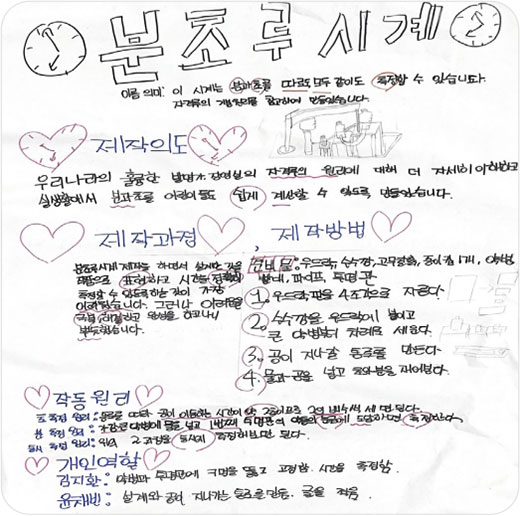 분초루시계
이름 의미: 이 시계는 분과 초를 따로도 모두 같이도 측정할 수 있습니다.
자격루의 개발원리를 참고하여 만들었습니다.
제작의도
우리나라의 훌륭한 발명가 장영실의 자격루의 원리에 대해 더 자세히 이해하고
실생활에서 분과 초를 어린이들도 쉽게 계산할 수 있도록 만들었습니다.
제작과정, 제작방법
분초루시계 제작을 하면서 설계한 것을
표현하고 시간을 정확히
측정할 수 있도록 하는 것이 가장
어려웠습니다. 그러나 어려움을
극복, 해결하고 완성을 하고나니
뿌듯했습니다.
준비물: 우드락, 수수깡, 고무찰흙, 종이컵 1개,
빨대, 파이프, 투명관
1. 우드락판을 4조각으로 자른다.
2. 수수깡을 우드락에 붙이고
큰 대야부터 차례로 세운다.
3. 공이 지나갈 통로를 만든다.
4. 물과 공을 넣고 초와 분을 재어본다.
작동원리
초 측정 원리: 물을 따라 공이 이동하는 시간이 약 2초이므로 2의 배수씩 세면 된다.
분 측정 원리: 물을 넣고 1번째 투명관의 도달하면 측정한다.
동시 측정 원리: 위의 2 과정을 동시에 측정하면 된다.
개인역할
김지환: 대야와 투명관에 구멍을 뚫고 고정함. 시간을 측정함.
윤채빈: 설계와 공이 지나가는 통로를 만듦. 글을 적음.